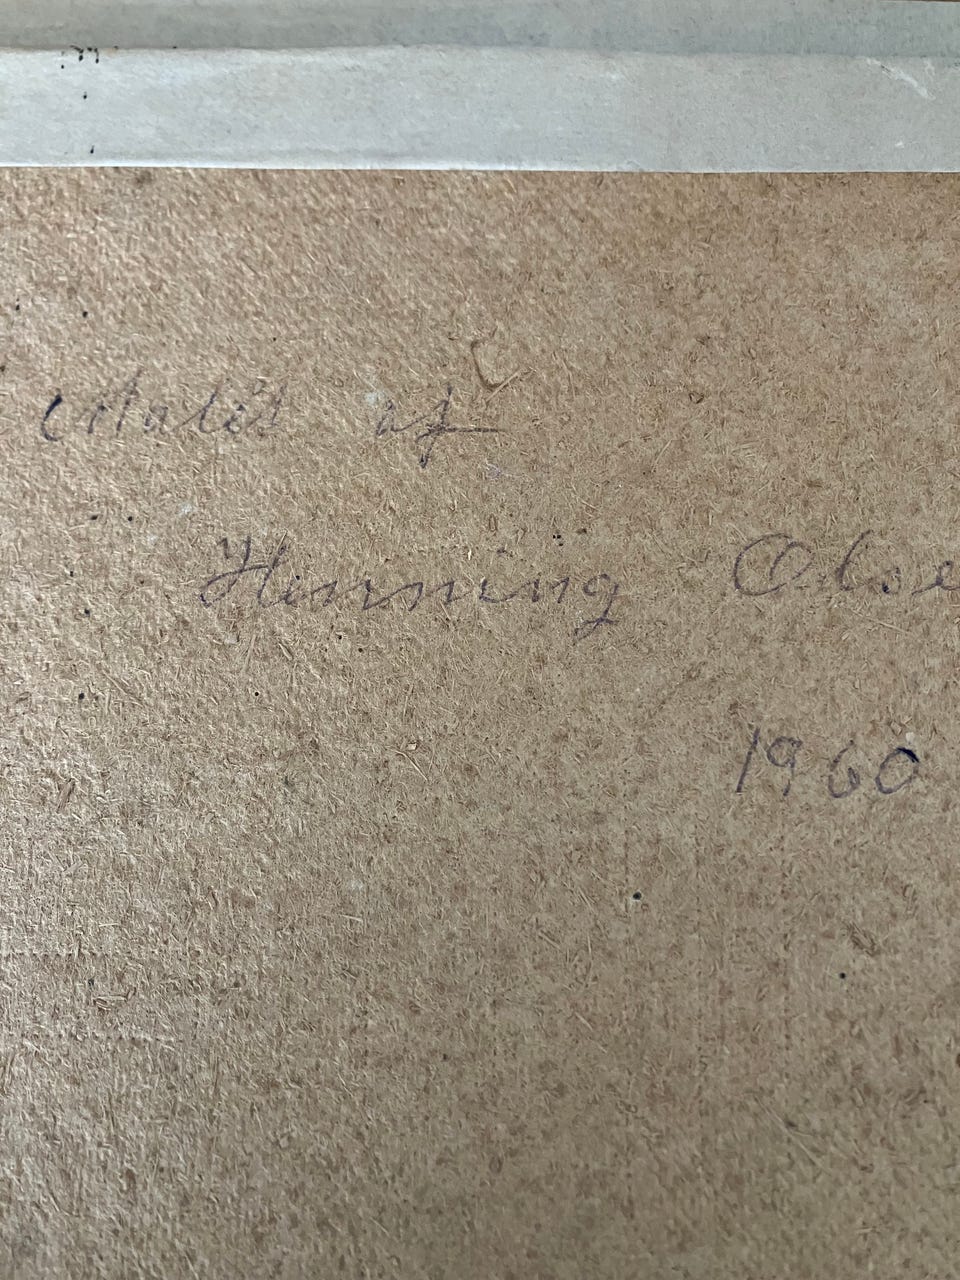 Malet af
Henning Olse
1960